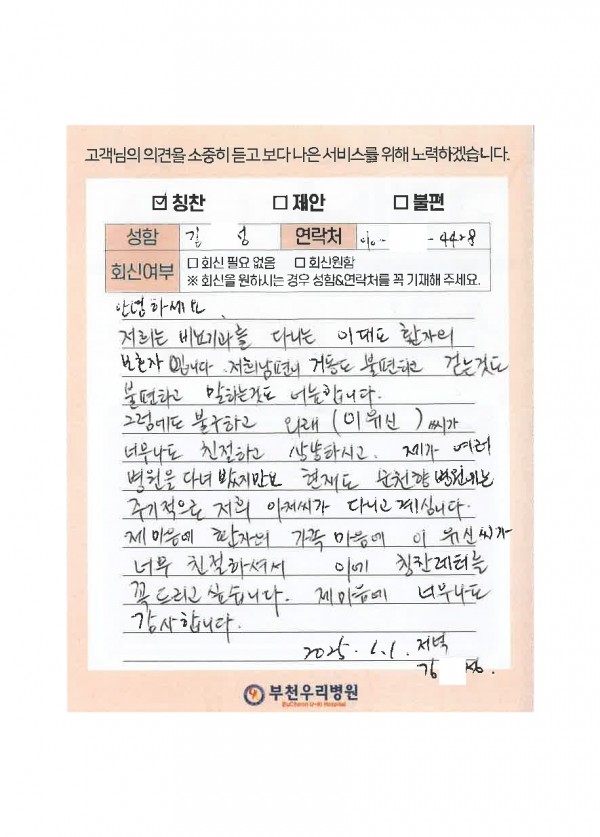 고객님의 의견을 소중히 듣고 보다 나은 서비스를 위해 노력하겠습니다.
☑ 칭찬 □ 제안 □ 불편
성함 김 성 연락처 010- -4428
회신여부 □ 회신 필요 없음 □ 회신원함
※ 회신을 원하시는 경우 성함&연락처를 꼭 기재해 주세요.
안녕하세요.
저희는 비뇨기과를 다니는 이대도 환자의
보호자입니다. 저희남편이 거동도 불편하고 걷는것도
불편하고 말하는것도 어눌합니다.
그럼에도 불구하고 외래 (이위신) 씨가
너무나도 친절하고 상냥하시고. 제가 여러
병원을 다녀 봤지만요 현재도 순천향 병원에는
주기적으로 저희 아저씨가 다니고 계십니다.
제 마음에 환자의 가족 마음에 이위신씨가
너무 친절하셔서 이에 칭찬레터를
꼭 드리고 싶습니다. 제 마음에 너무나도
감사합니다.
2025. 1. 저녁
김
부천우리병원
BuCheon U-Ri Hospital